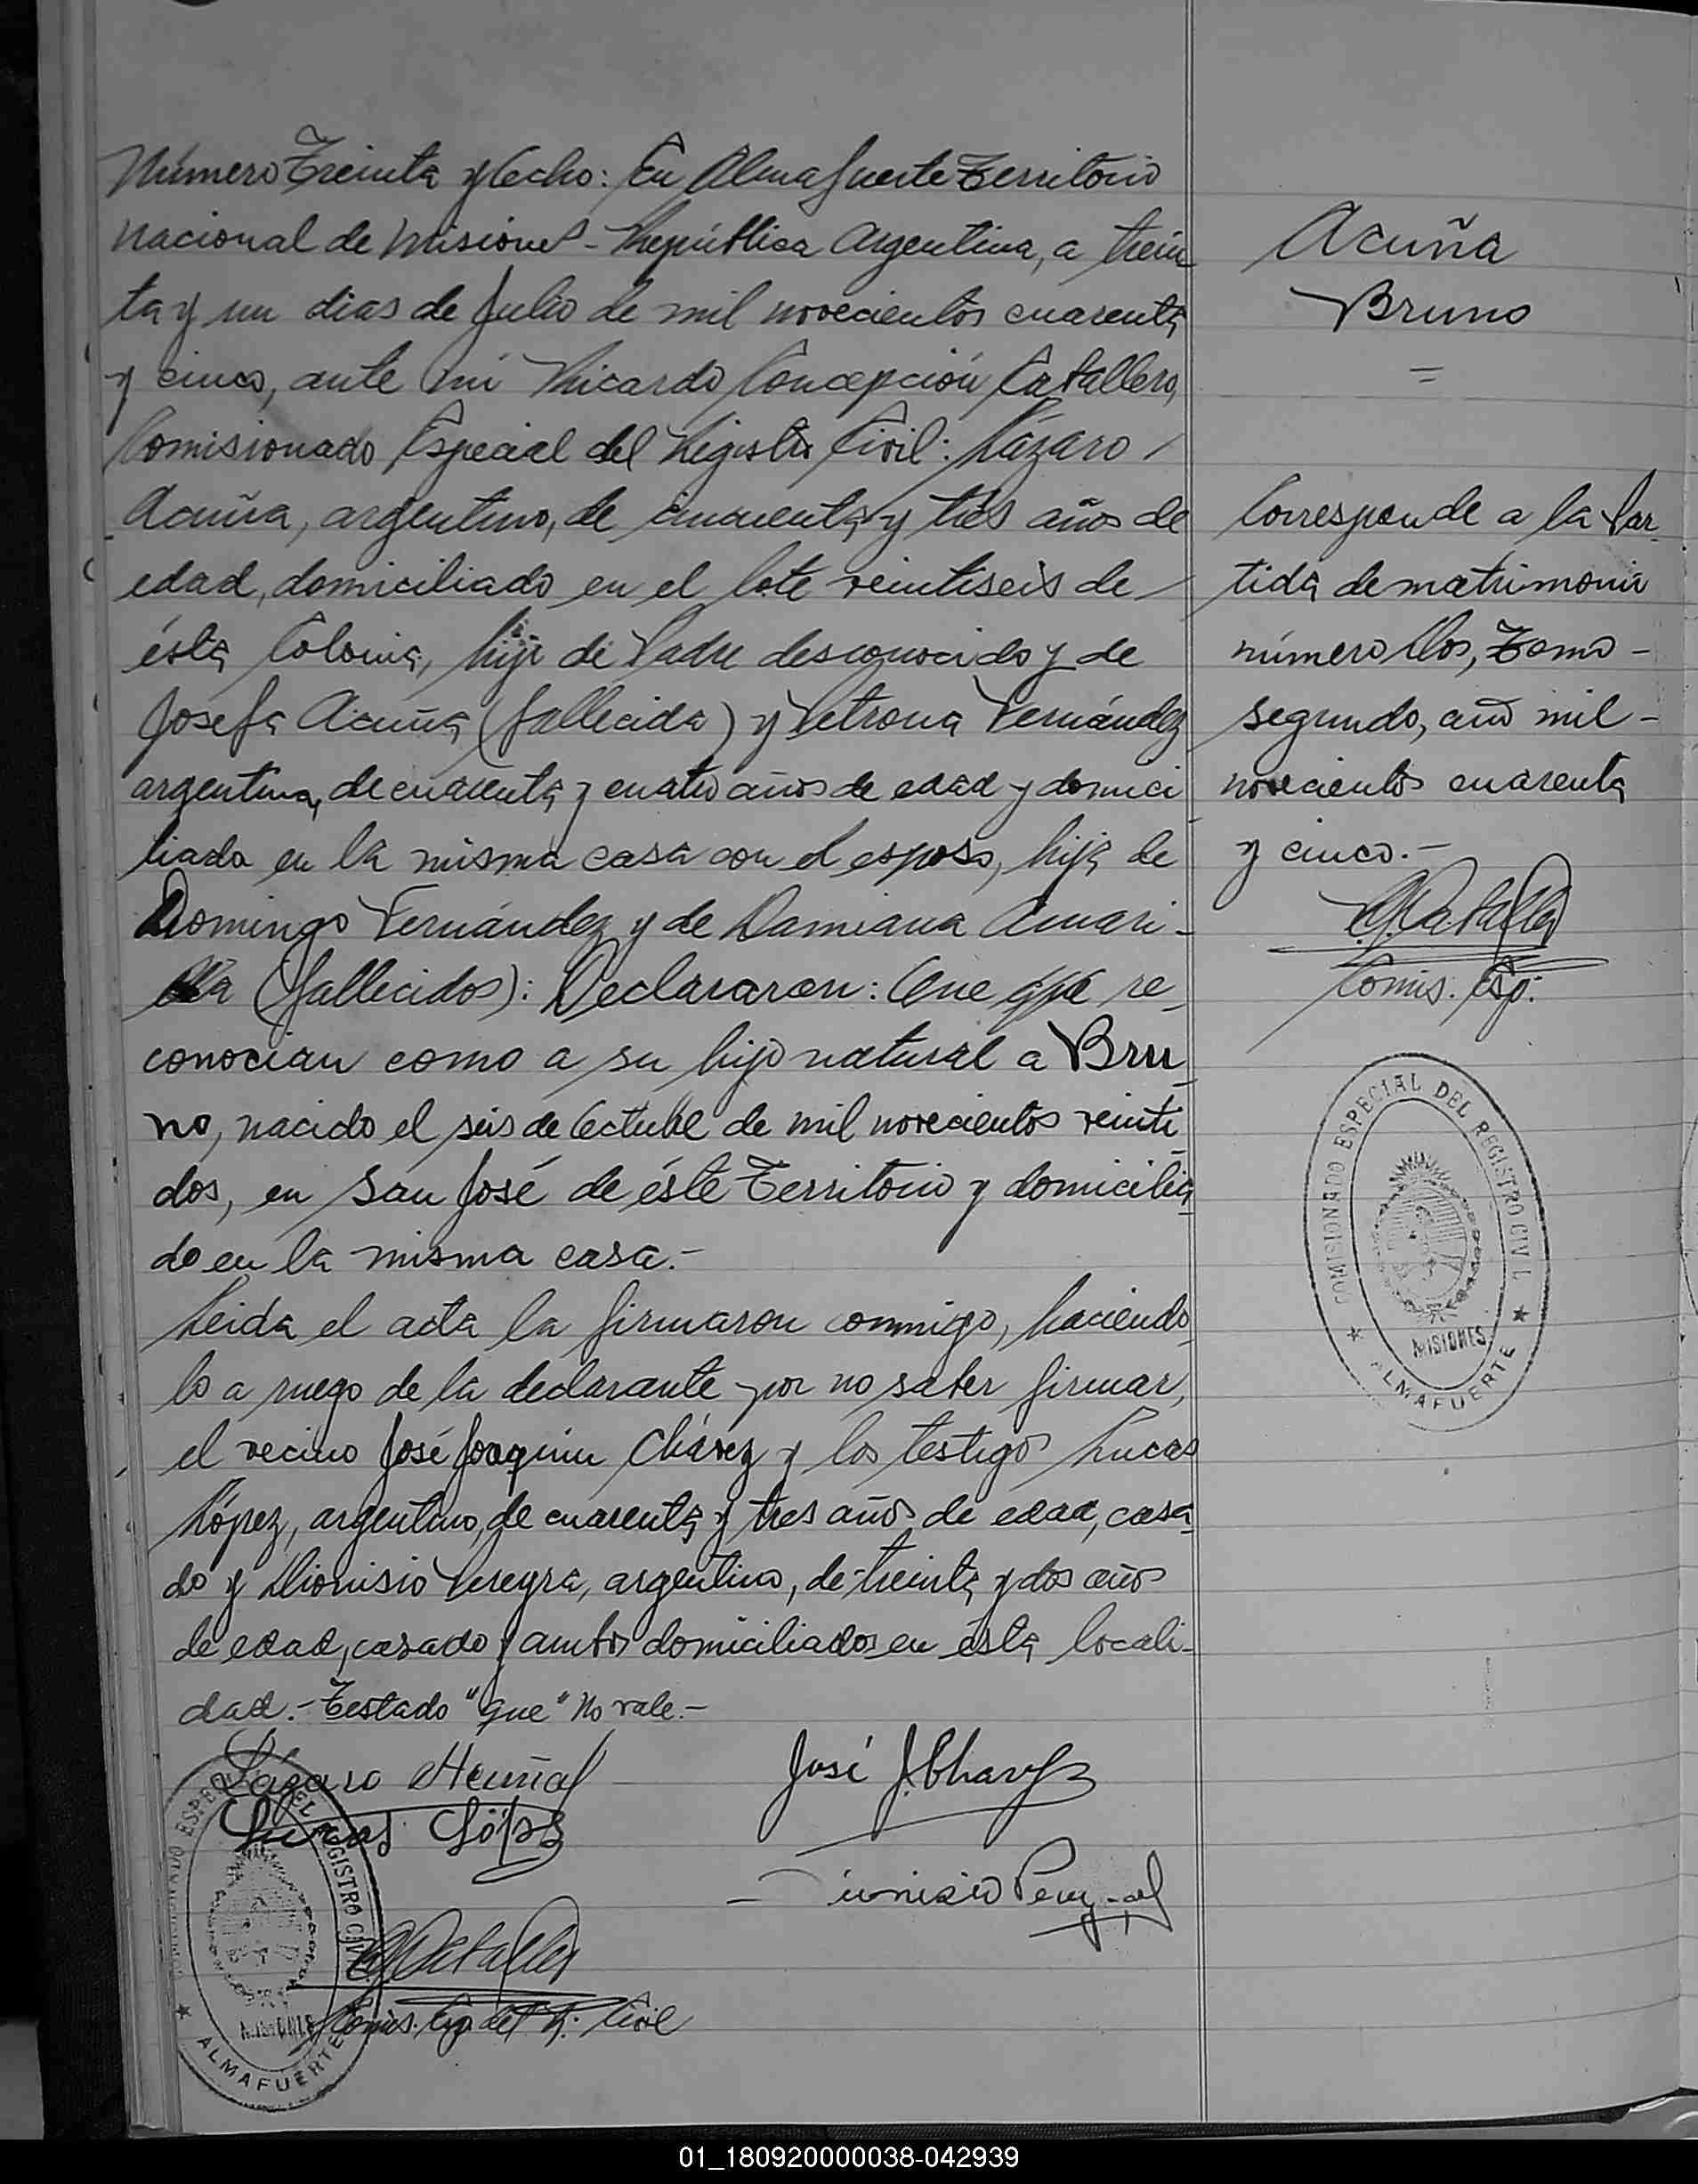 Número Treinta y Ocho: En Almafuerte Territorio
Nacional de Misiones - República Argentina, a trein
ta y un dias de Julio de mil novecientos cuarenta
y cinco, ante mi Ricardo Concepción Caballero,
Comisionado Especial del Registro Civil: Lázaro
Acuña, argentino, de cincuenta y tres años de
edad, domiciliado en el lote veintiseis de
ésta Colonia, hijo de Padre desconocido y de
Josefa Acuña (fallecida) y Petrona Fernández
argentina, de cuarenta y cuatro años de edad y domici
liada en la misma casa con el esposo, hija de
Domingo Fernández y de Damiana Amari-
lla (fallecidos): Declararon: Que que re_
conocian como a su hijo natural a Bru_
no, nacido el seis de Octubre de mil novecientos veinti_
dos, en San José de éste Territorio y domicilia_
do en la misma casa.-
Leida el acta la firmaron conmigo, haciendo
lo a ruego de la declarante por no saber firmar,
el vecino José Joaquin Chávez y los testigos Lucas
López, argentino, de cuarenta y tres años de edad, casa_
do y Dionisio Pereyra, argentino, de treinta y dos años
de edad, casado y ambos domiciliados en ésta locali-
dad.- Testado "que" No vale.-
Lázaro Acuña
José J. Chavez
Lucas López
Dionisio Pereyra
R. C. Caballero
Comis. Esp. del R. Civil
COMISIONADO ESPECIAL DEL REGISTRO CIVIL
MISIONES
ALMAFUERTE
Acuña
Bruno
=
Corresponde a la Par_
tida de matrimonio
número Dos, Tomo -
segundo, año mil -
novecientos cuarenta
y cinco.-
R. C. Caballero
Comis. Esp.
COMISIONADO ESPECIAL DEL REGISTRO CIVIL
MISIONES
ALMAFUERTE
01_180920000038-042939